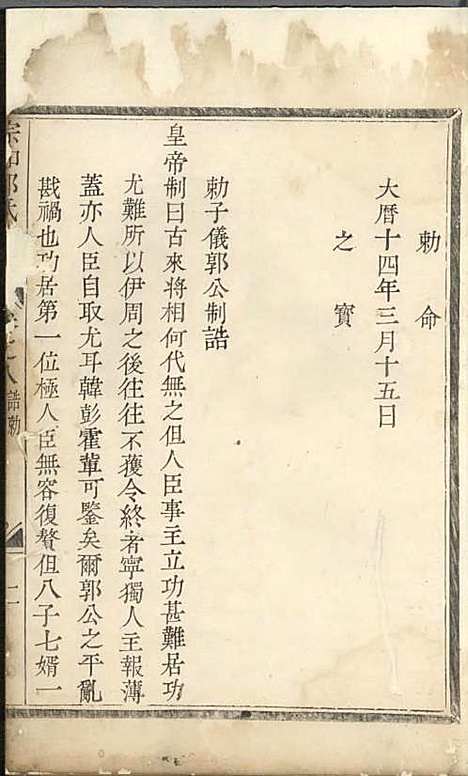 勅命
大曆十四年三月十五日
之寳
勅子儀郭公制誥
皇帝制曰古來将相何代無之但人臣事主立功甚難居功
尤難所以伊周之後往往不蒦令終者寜獨人主報薄
葢亦人臣自取尤耳韓彭霍輩可鑒矣爾郭公之平亂
戡禍也功居第一位極人臣無容復贅但八子七婿一
郭氏
誥勅
二